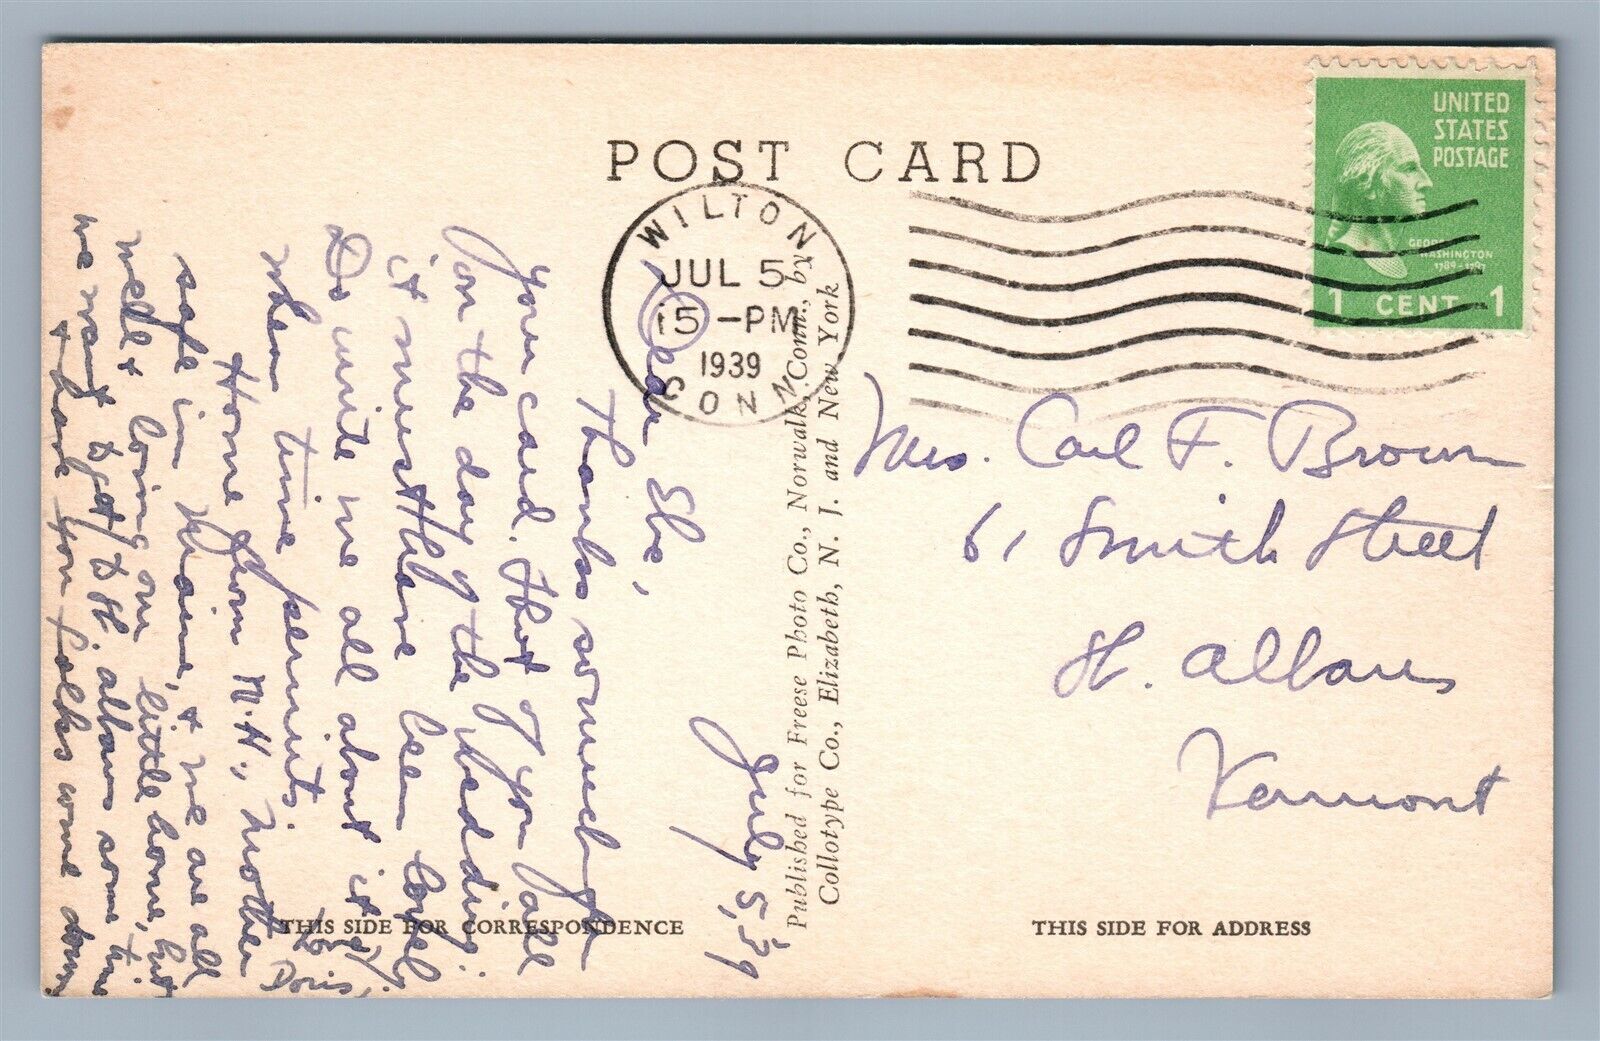 POST CARD
WILTON
JUL 5
15-PM
1939
CONN.
UNITED
STATES
POSTAGE
GEORGE
WASHINGTON
1789-1797
1 CENT 1
July 5, '39
Dear
Thanks so much for
your card. thot of you all
on the day of the wedding:
it must have been lovely
Do write me all about it
when time permits.
Home from N.H., Mother
safe in Maine, & we are all
well & loving our little home, but
we want to get to St. Albans some time
& have you folks come down
Doris
Published for Freese Photo Co., Norwalk, Conn., by
Collotype Co., Elizabeth, N. J. and New York
Mrs. Carl F. Brown
61 Smith Street
St. Albans
Vermont
THIS SIDE FOR CORRESPONDENCE
THIS SIDE FOR ADDRESS